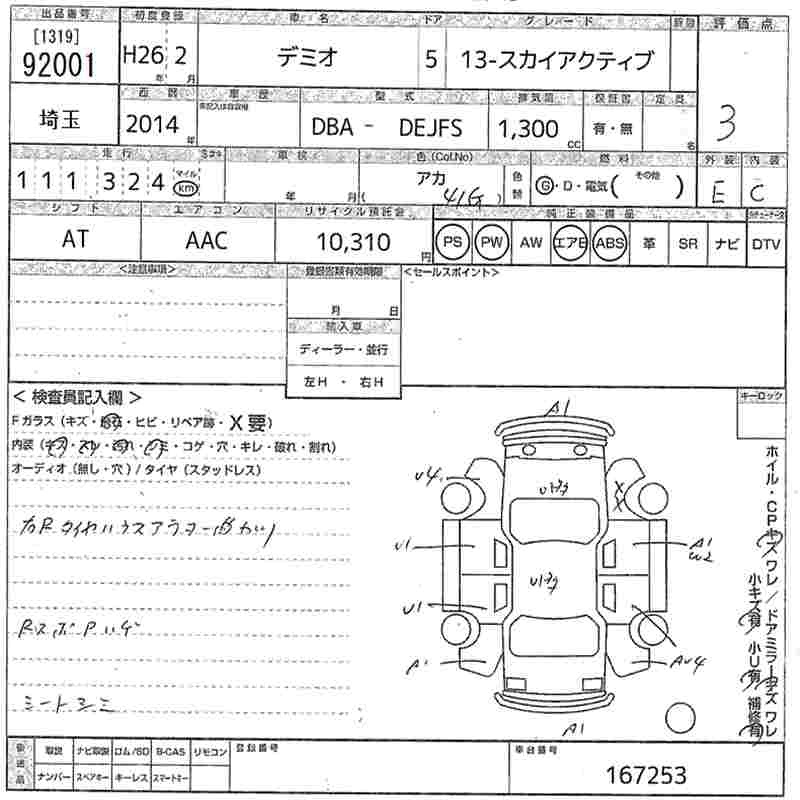 出品番号 初度登録 車名 ドア グレード 評価点
[1319]
92001 H26年 2月 デミオ 5 13-スカイアクティブ 3
埼玉 西暦 車歴 型式 排気量 保証書 定員
2014年 DBA - DEJFS 1,300cc 有・無 名
走行 車検 色(Col.No) 燃料 外装 内装
111,324 マイル km 年 月 アカ 41G 色替 G・D・電気( その他 ) E C
シフト エアコン リサイクル預託金 純正装備品
AT AAC 10,310円 PS PW AW エアB ABS 革 SR ナビ DTV
<注意事項> 登録書類有効期限 <セールスポイント>
月 日
輸入車
ディーラー・並行
左H ・ 右H
<検査員記入欄> キーロック
Fガラス(キズ・飛石・ヒビ・リペア跡・X要)
内装(キズ・スレ・汚れ・シミ・コゲ・穴・キレ・破れ・割れ)
オーディオ(無し・穴)/タイヤ(スタッドレス)
シートシミ
A1
U4
X
X
U1
A1
U1
A1
A1
ホイル・CPキズ ワレ/ドアミラーキズ ワレ
小キズ有 小U有 補修有
後送品 取説 ナビ取説 ロム/SD B-CAS リモコン 登録番号 車台番号
ナンバー スペアキー キーレス スマートキー 167253